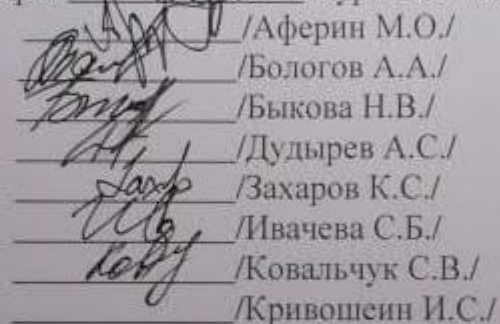 /Аферин М.О./
/Бологов А.А./
/Быкова Н.В./
/Дудырев А.С./
/Захаров К.С./
/Ивачева С.Б./
/Ковальчук С.В./
/Кривошеин И.С./